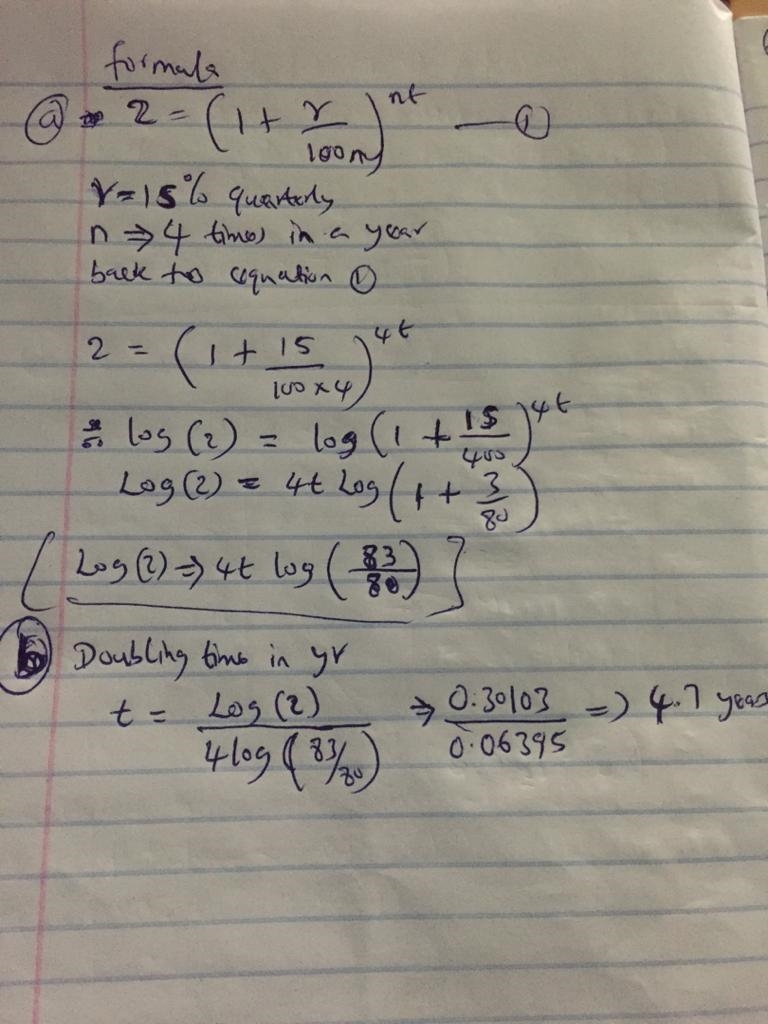 formula
(a) 2 = (1 + r/100n)^nt — (1)
r = 15% quarterly
n ⇒ 4 times in a year
back to equation (1)
2 = (1 + 15/100×4)^4t
log (2) = log (1 + 15/400)^4t
Log (2) = 4t Log (1 + 3/80)
[Log (2) ⇒ 4t log (83/80)]
(b) Doubling time in yr
t = Log (2)/4 log (83/80) ⇒ 0.30103/0.06395 => 4.7 years